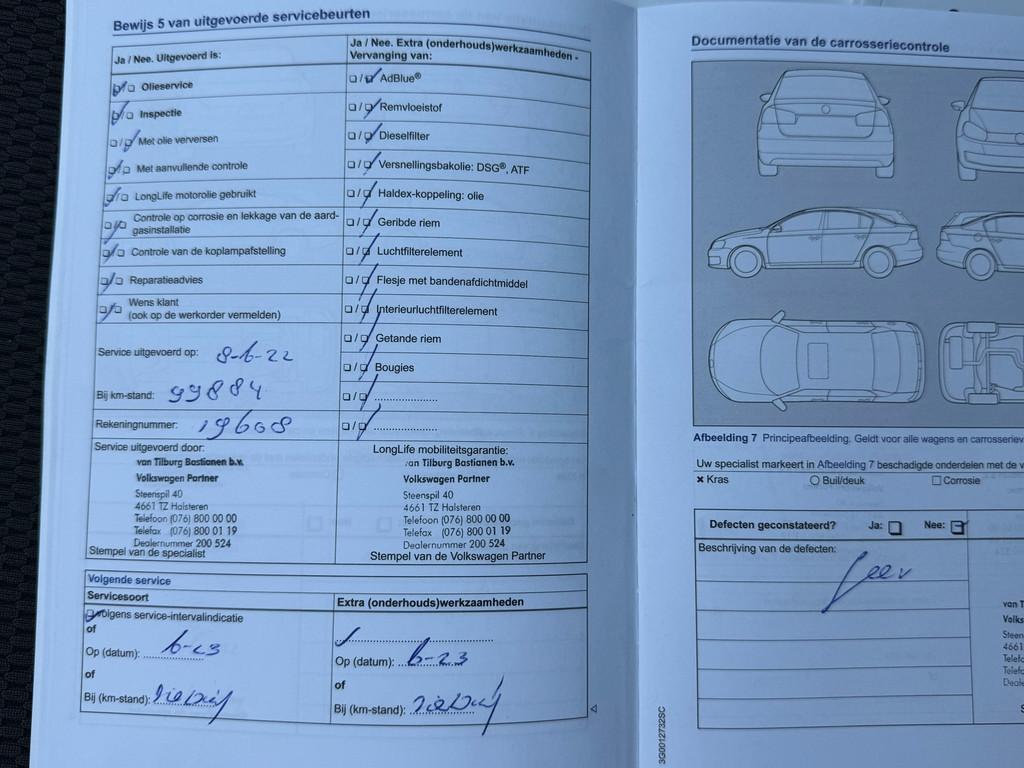 Bewijs 5 van uitgevoerde servicebeurten
Ja / Nee. Uitgevoerd is:
Olieservice
Inspectie
Met olie verversen
Met aanvullende controle
LongLife motorolie gebruikt
Controle op corrosie en lekkage van de aard-
gasinstallatie
Controle van de koplampafstelling
Reparatieadvies
Wens klant
(ook op de werkorder vermelden)
Service uitgevoerd op: 8-6-22
Bij km-stand: 99884
Rekeningnummer: 19608
Service uitgevoerd door:
van Tilburg Bastianen b.v.
Volkswagen Partner
Steenspil 40
4661 TZ Halsteren
Telefoon (076) 800 00 00
Telefax (076) 800 01 19
Dealernummer 200 524
Stempel van de specialist
Ja / Nee. Extra (onderhouds)werkzaamheden -
Vervanging van:
AdBlue®
Remvloeistof
Dieselfilter
Versnellingsbakolie: DSG®, ATF
Haldex-koppeling: olie
Geribde riem
Luchtfilterelement
Flesje met bandenafdichtmiddel
Interieurluchtfilterelement
Getande riem
Bougies
LongLife mobiliteitsgarantie:
van Tilburg Bastianen b.v.
Volkswagen Partner
Steenspil 40
4661 TZ Halsteren
Telefoon (076) 800 00 00
Telefax (076) 800 01 19
Dealernummer 200 524
Stempel van de Volkswagen Partner
Volgende service
Servicesoort
volgens service-intervalindicatie
of
Op (datum): 6-23
of
Bij (km-stand):
Extra (onderhouds)werkzaamheden
Op (datum): 6-23
of
Bij (km-stand):
Documentatie van de carrosseriecontrole
Afbeelding 7 Principeafbeelding. Geldt voor alle wagens en carrosseriev
Uw specialist markeert in Afbeelding 7 beschadigde onderdelen met de v
× Kras ○ Buil/deuk □ Corrosie
Defecten geconstateerd? Ja: Nee:
Beschrijving van de defecten:
van T
Volks
Steen
4661
Telefo
Telefa
Deale
S
3G0012732SC